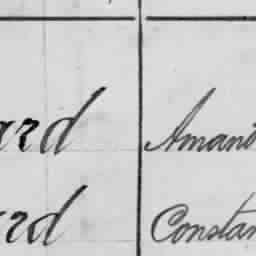 ard Amand
ard Constan